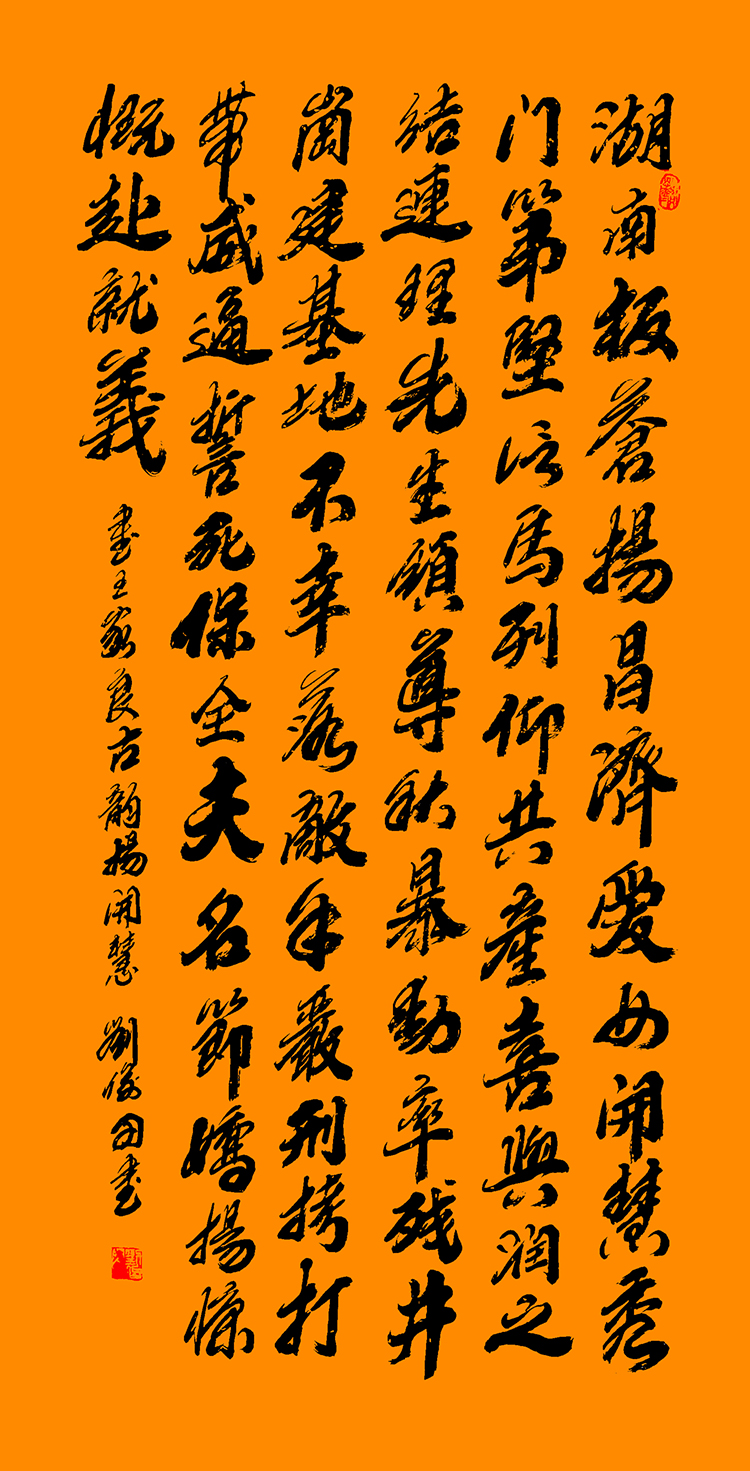 湖南板蒼揚昌濟愛女開慧秀
门第堅信馬列仰共產喜與润之
结連理先生領尊秋暴動率残井
崗建基地不幸落敵手嚴刑拷打
带威逼誓死保全夫名節嬌揚慷
慨赴就義
書王家良古韻揚開慧 劉俊田書